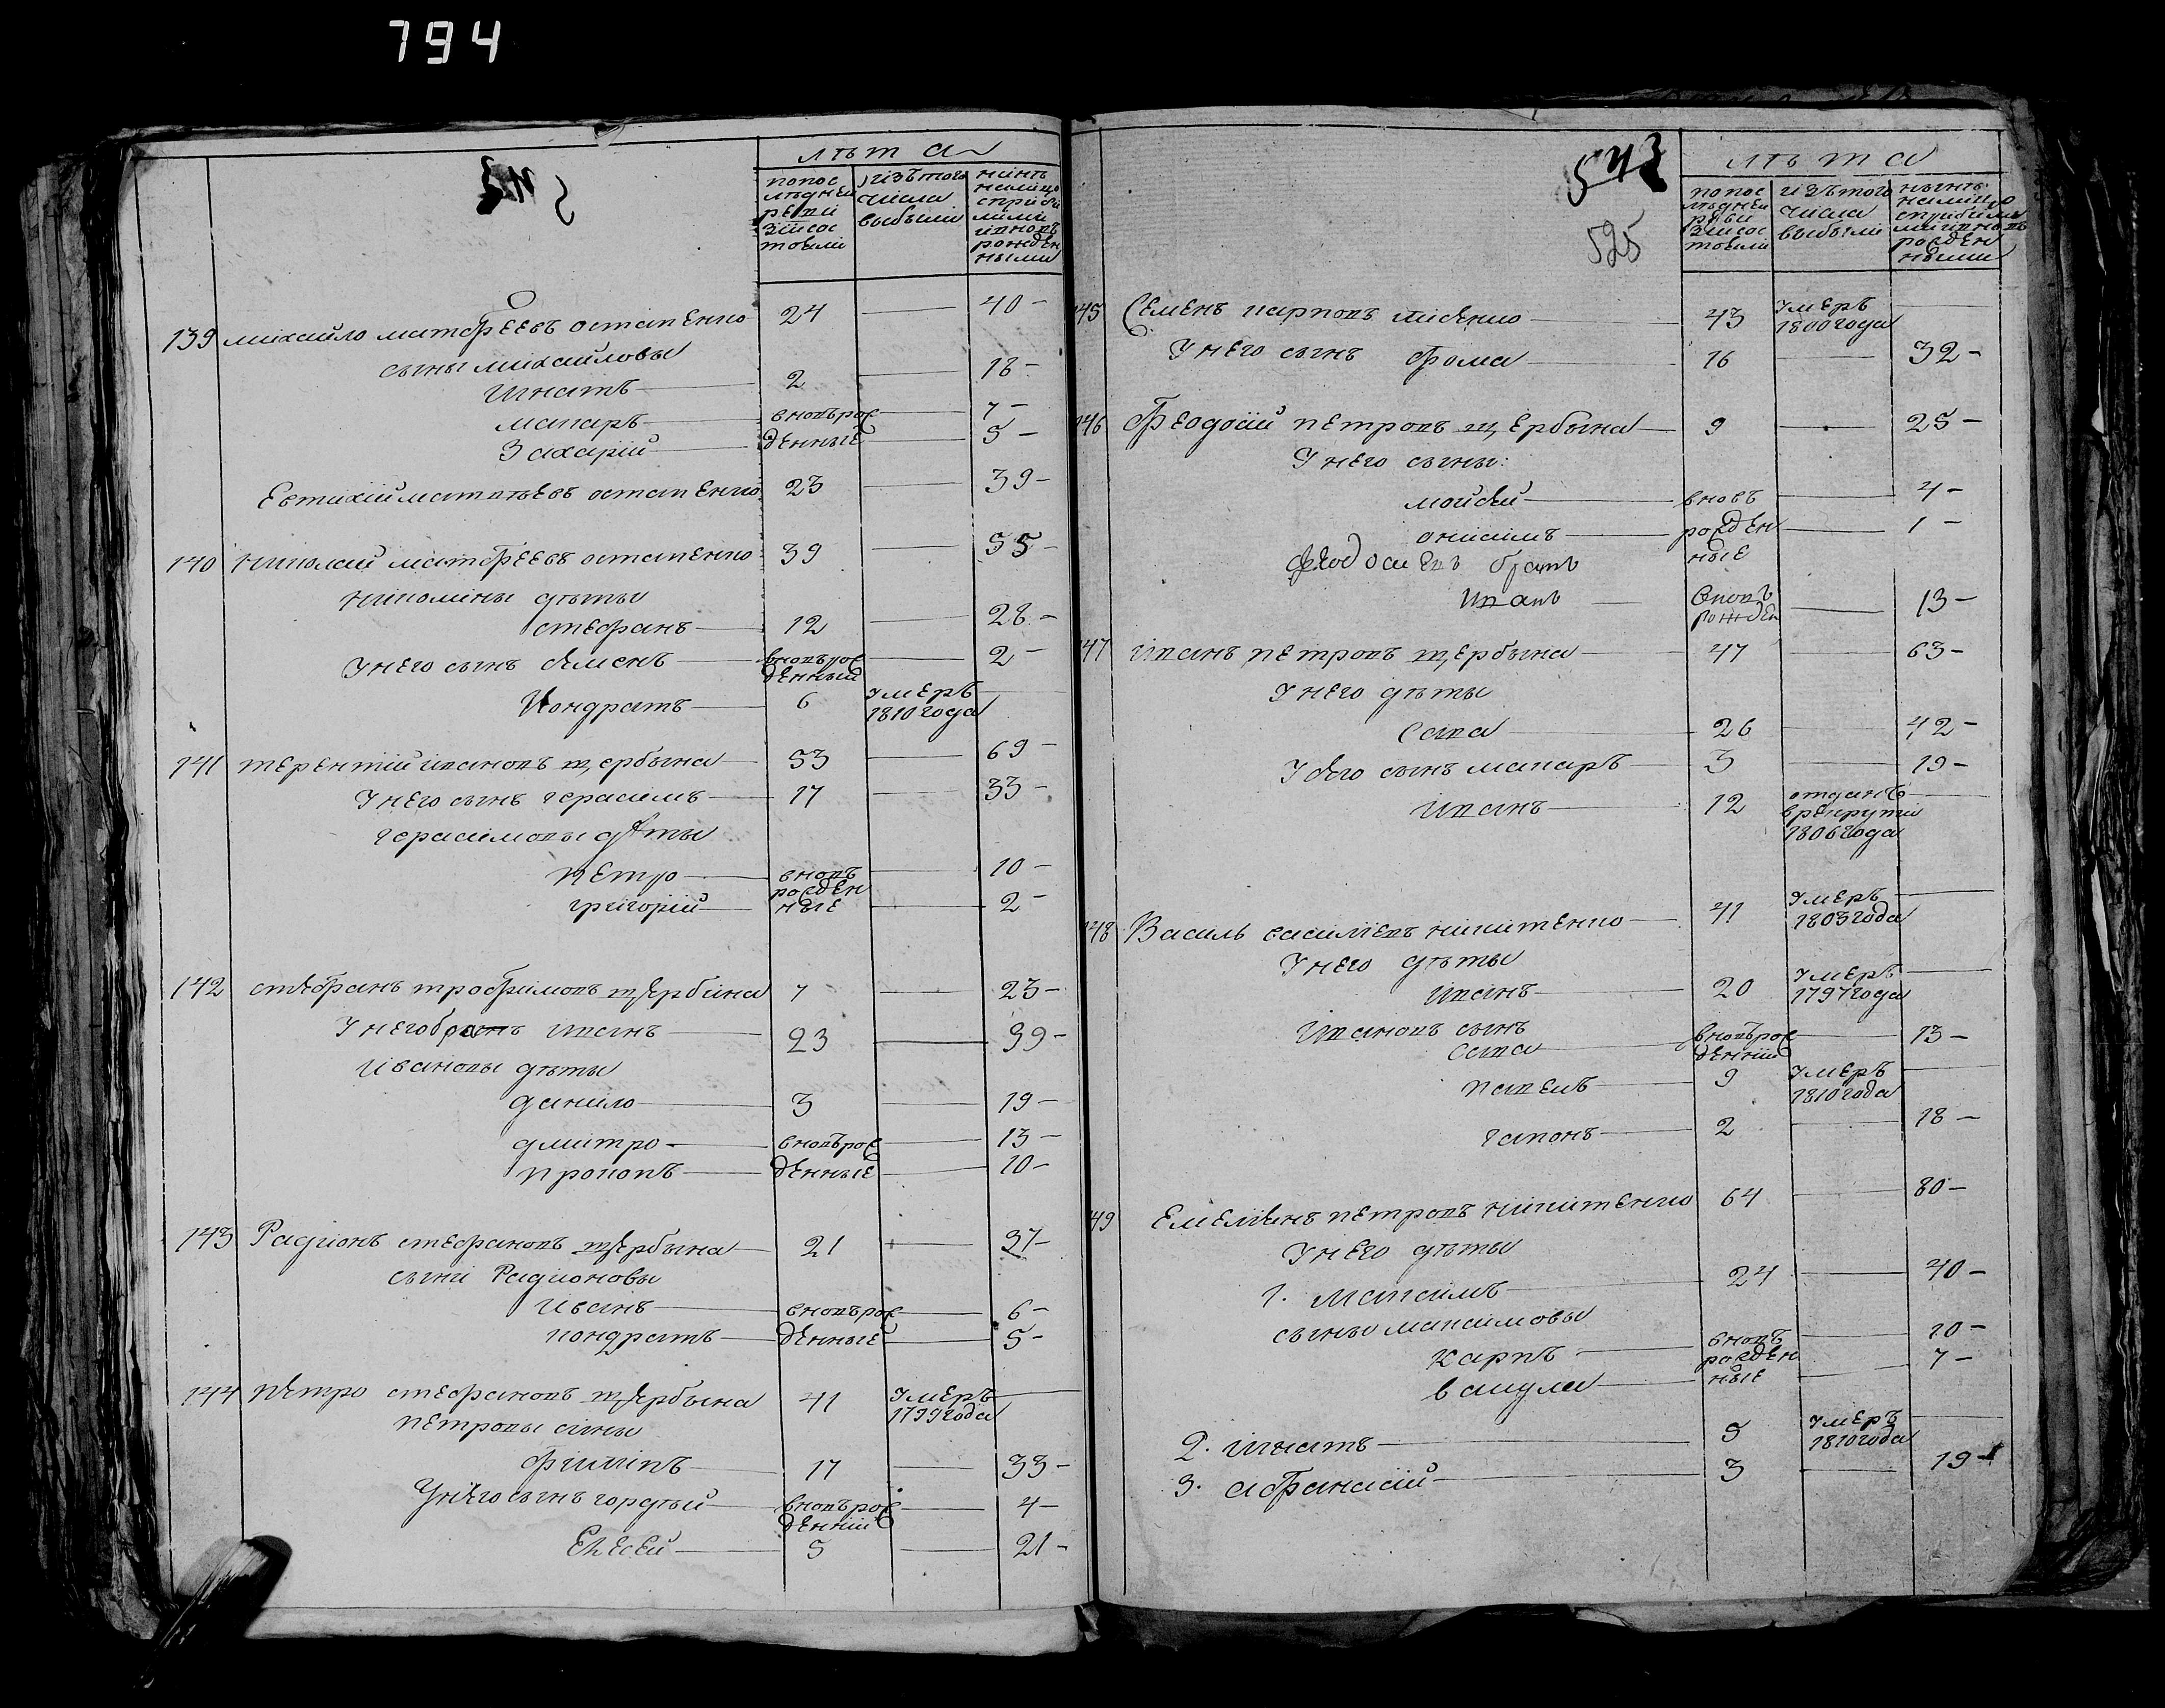 794
лѣта
попос
лѣдней
реви
зiисос
тояли
изътого
числа
выбыли
нынѣ
налицо
сприбы
лыми
ивновъ
рожден
ными
139 михайло матфеевъ остапенко 24 — 40 -
сыны михайловы
игнатъ 2 — 18 -
макаръ вновьрож — 7 -
Захарiй денные — 5 -
Евтихiй матвѣевъ остапенко 23 — 39 -
140 николай матфеевъ остапенко 39 — 55 -
николины дѣты
стефанъ 12 — 28 -
Унего сынъ семенъ вновьрож денный — 2 -
Кондратъ 6 умеръ 1810 года —
141 терентiй ивановъ щербына 53 — 69 -
Унего сынъ герасимъ 17 — 33 -
герасимовы дѣты
петро вновъ — 10 -
григорiй рожден ные — 2 -
142 стефанъ трофимовъ щербина 7 — 23 -
Унего братъ иванъ 23 — 39 -
Ивановы дѣты
данило 3 — 19 -
дмитро вновьрож — 13 -
прокопъ денные — 10 -
143 Радiонъ стефановъ щербына 21 — 37 -
сыни Радионовы
иванъ вновьрож — 6 -
кондратъ денные — 5 -
144 петро стефановъ щербына 41 умеръ 1799 года —
петровы сины
филипъ 17 — 33 -
Унего сынъ гордѣй вновьрож деннiй — 4 -
Елесей 5 — 21 -
543
525
лѣта
попос
лѣдней
реви
зiисос
тояли
изътого
числа
выбыли
нынѣ
налицо
сприбылы
миивновъ
рожден
ными
145 Семенъ карповъ лисенко 43 умеръ 1800 года —
Унего сынъ фома 16 — 32 -
146 Феодосiй петровъ щербына 9 — 25 -
Унего сыны:
мойсей вновъ — 4 -
онисимъ рожден ные — 1 -
феодосiевъ братъ
иванъ вновъ рожден — 13 -
147 иванъ петровъ щербына 47 — 63 -
Унего дѣты
сава 26 — 42 -
Усего сынъ макаръ 3 — 19 -
иванъ 12 отданъ врекруты 1806 года —
148 Василь василiевъ никитенко 41 умеръ 1803 года —
Унего дѣты
иванъ 20 умеръ 1797 года —
ивановъ сынъ
сава вновьрож деннiй — 13 -
павелъ 9 умеръ 1810 года —
гапонъ 2 — 18 -
149 Емелiянъ петровъ никитенко 64 — 80 -
Унего дѣты
1. максимъ 24 — 40 -
сыны максимовы
карпъ вновъ — 10 -
вакула рожден ные — 7 -
2. игнатъ 5 умеръ 1810 года —
3. афанасiй 3 — 19 -